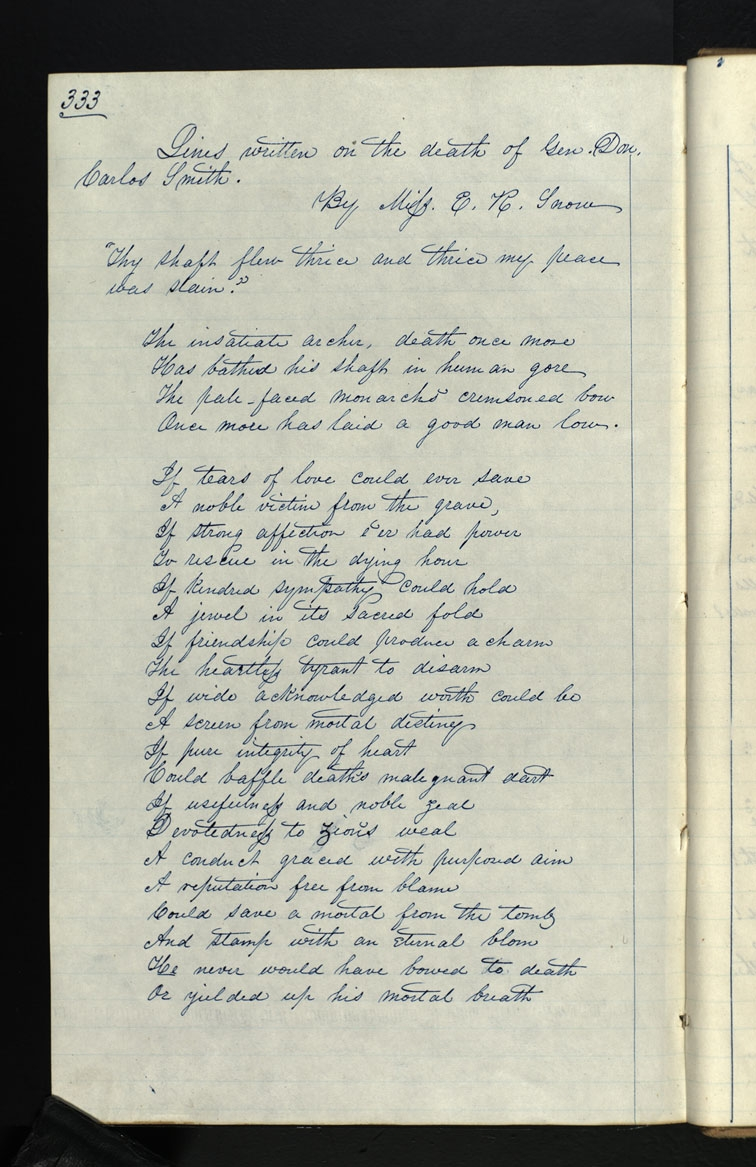 333
Lines written on the death of Gen. Don.
Carlos Smith.
By Miss. E. R. Snow
"Thy shaft flew thrice and thrice my peace
was slain."
The insatiate archer, death once more
Has bathed his shaft in human gore
The pale-faced monarchs crimsoned bow
Once more has laid a good man low.
If tears of love could ever save
A noble victim from the grave,
If strong affection e'er had power
To rescue in the dying hour
If kindred sympathy could hold
A jewel in its sacred fold
If friendship could produce a charm
The heartless tyrant to disarm
If wide acknowledged worth could be
A screen from mortal destiney
If pure integrity of heart
Could baffle death's malegnant dart
If usefulness and noble zeal
Devotedness to Zion's weal
A conduct graced with purposed aim
A reputation free from blame
Could save a mortal from the tomb
And stamp with an eternal blom
He never would have bowed to death
Or yielded up his mortal breath